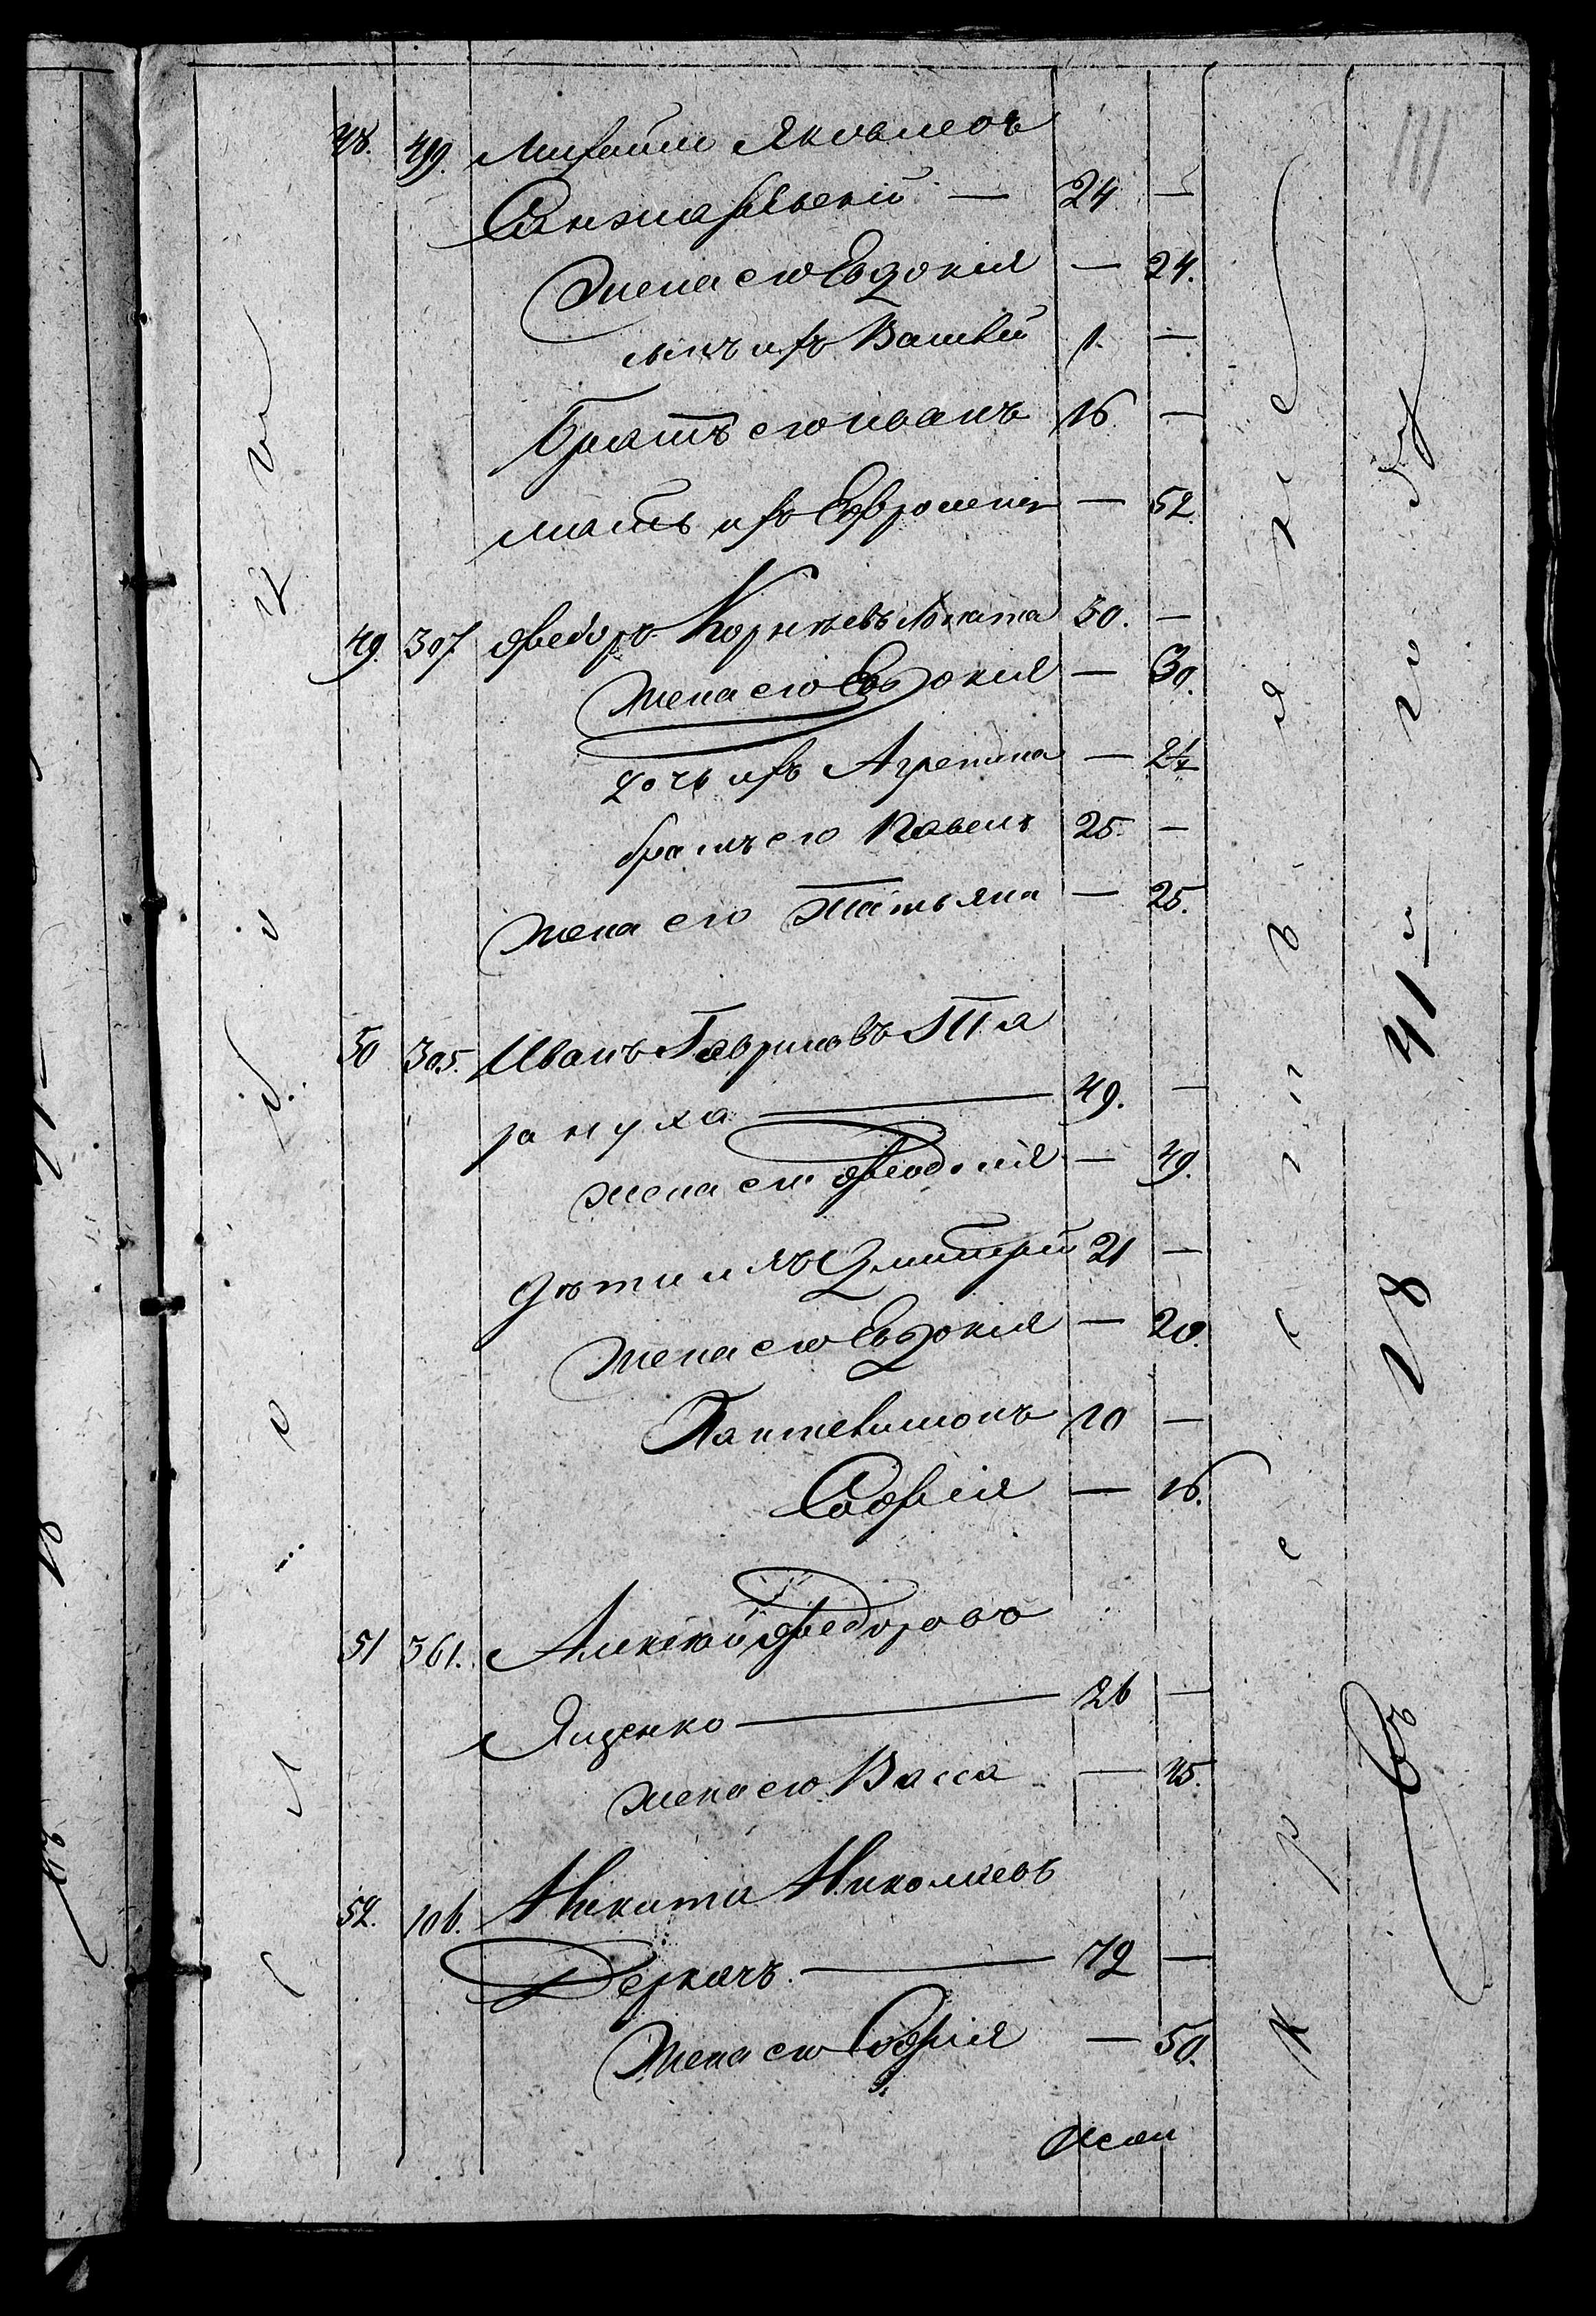 111
48. 499. Михаилъ Яковлевъ
Санжаревскій — 24 —
Жена его Евдокія — 24.
сынъ ихъ Василій 1. —
Братъ его иванъ 16 —
мать ихъ Ефросинія — 52.
49. 307 Федоръ Корнѣевъ 30. —
Жена его Евдокія — 30.
дочь ихъ Агрепина —
братъ его Павелъ 25. —
Жена его Татьяна — 25.
50 305. Иванъ Гавриловъ Та
рануха — 49. —
жена его Феодосія — 49.
дѣти ихъ Дмитрій 21 —
Жена его Евдокія — 20.
Пантелимонъ 10 —
Софія — 16.
51 361. Алексѣй Федоровъ
Яценко — 26 —
жена его Васса — 25.
52. 106. Никита Николаевъ
Деркачъ. — 72 —
Жена его Софія — 50.